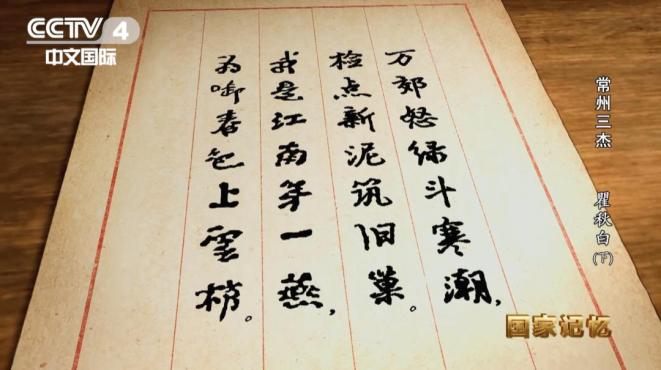 CCTV 4
中文国际
万郊怒绿斗寒潮，
检点新泥筑旧巢。
我是江南第一燕，
为啣春色上雲梢。
常州三杰 瞿秋白(下)
国家记忆